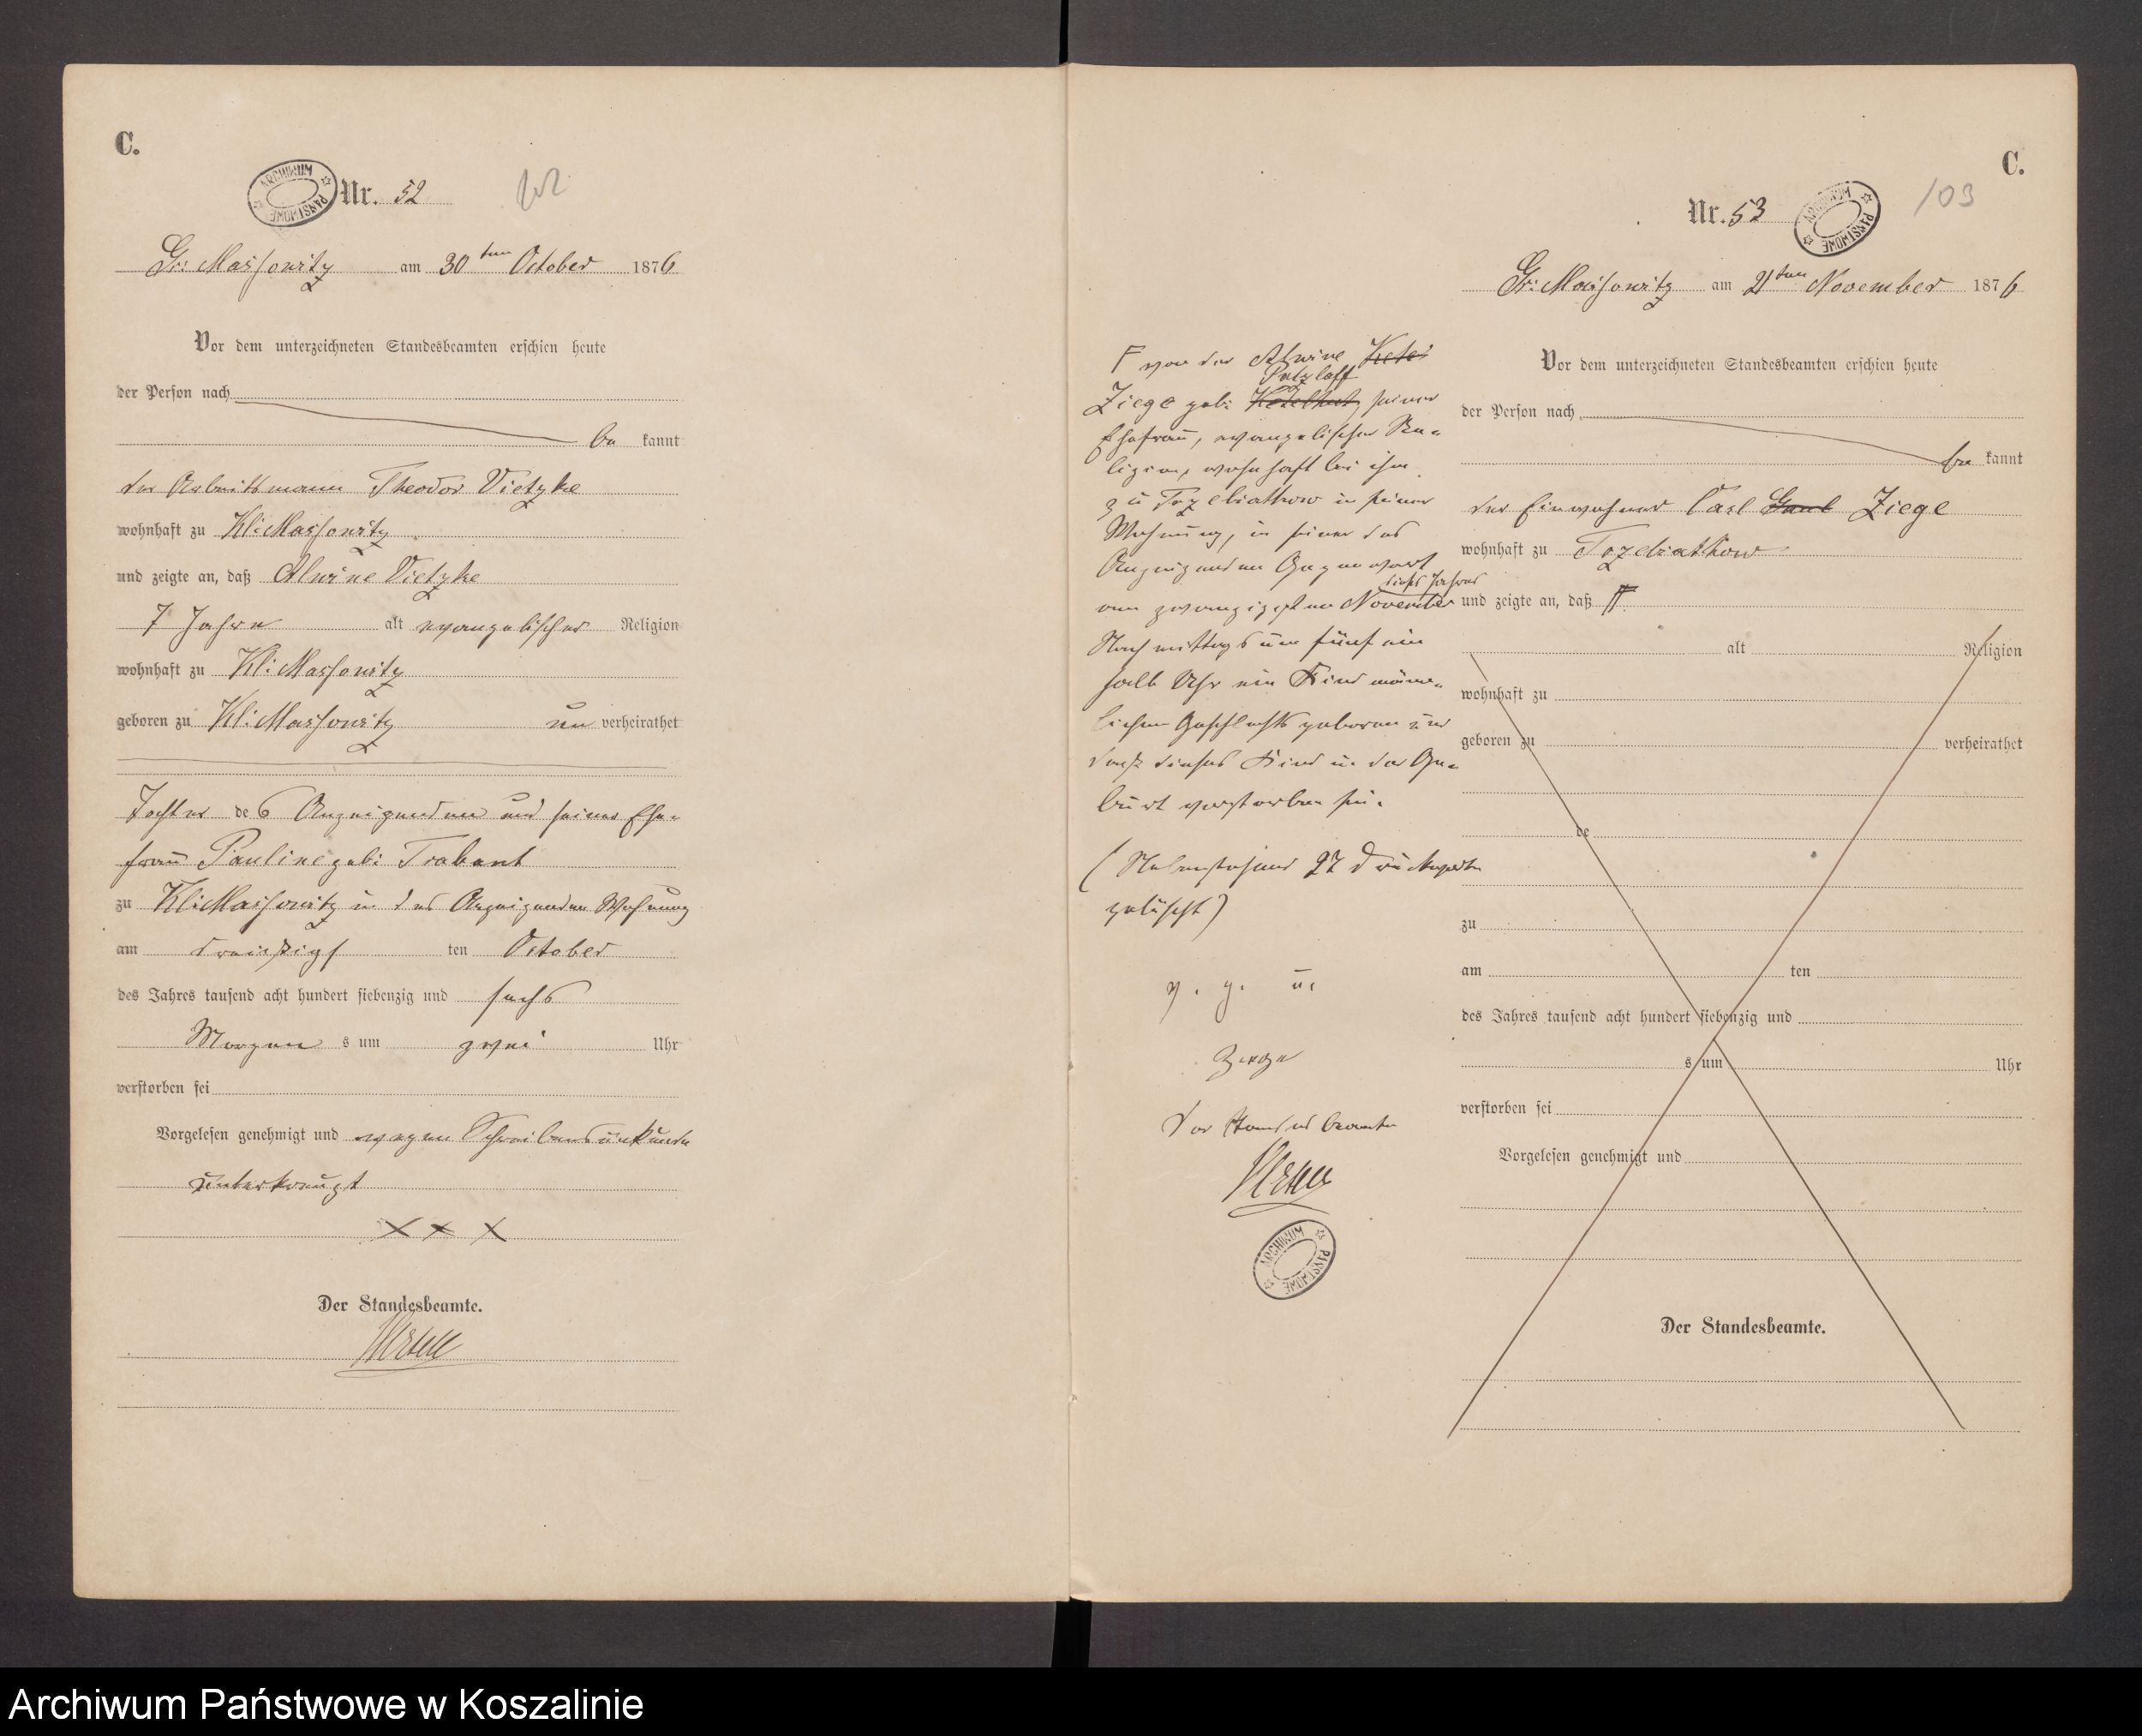 C.
ARCHIWUM PAŃSTWOWE
Nr. 52
102
Gr: Massowitz am 30ten October 1876
Vor dem unterzeichneten Standesbeamten erschien heute
der Person nach
be kannt
der Arbeitsmann Theodor Vietzke
wohnhaft zu Kl: Massowitz
und zeigte an, daß Alwine Vietzke
7 Jahre alt evangelischer Religion
wohnhaft zu Kl: Massowitz
geboren zu Kl: Massowitz un verheirathet
Tochter des Anzeigenden und seiner Ehe-
frau Pauline geb: Trabant
zu Kl: Massowitz in des Anzeigenden Wohnung
am dreißigs ten October
des Jahres tausend acht hundert siebenzig und sechs
Morgen s um zwei Uhr
verstorben sei
Vorgelesen genehmigt und wegen Schreibensunkunde
unterkreuzt
X X X
Der Standesbeamte.
C.
Nr. 53
ARCHIWUM PAŃSTWOWE
103
Gr: Massowitz am 21ten November 1876
Vor dem unterzeichneten Standesbeamten erschien heute
der Person nach
be kannt
der Einwohner Carl Ziege
wohnhaft zu Trzebiatkow
und zeigte an, daß F
alt Religion
wohnhaft zu
geboren zu verheirathet
de
zu
am ten
des Jahres tausend acht hundert siebenzig und
s um Uhr
verstorben sei
Vorgelesen genehmigt und
Der Standesbeamte.
F von der Alwine
Putzlaff
Ziege geb: seiner
Ehefrau, evangelischer Re-
ligion, wohnhaft bei ihm
zu Trzebiatkow in seiner
Wohnung, in seiner des
Anzeigenden Gegenwart
dieses Jahres
am zwanzigsten November
Nachmittags um fünf ein
halb Uhr ein Kind männ-
lichen Geschlechts geboren und
daß dieses Kind in der Ge-
burt verstorben sei.
(Nebenstehend 27 Druckworte
gelöscht)
v. g. u.
Ziege
Der Standesbeamte
ARCHIWUM PAŃSTWOWE
Archiwum Państwowe w Koszalinie